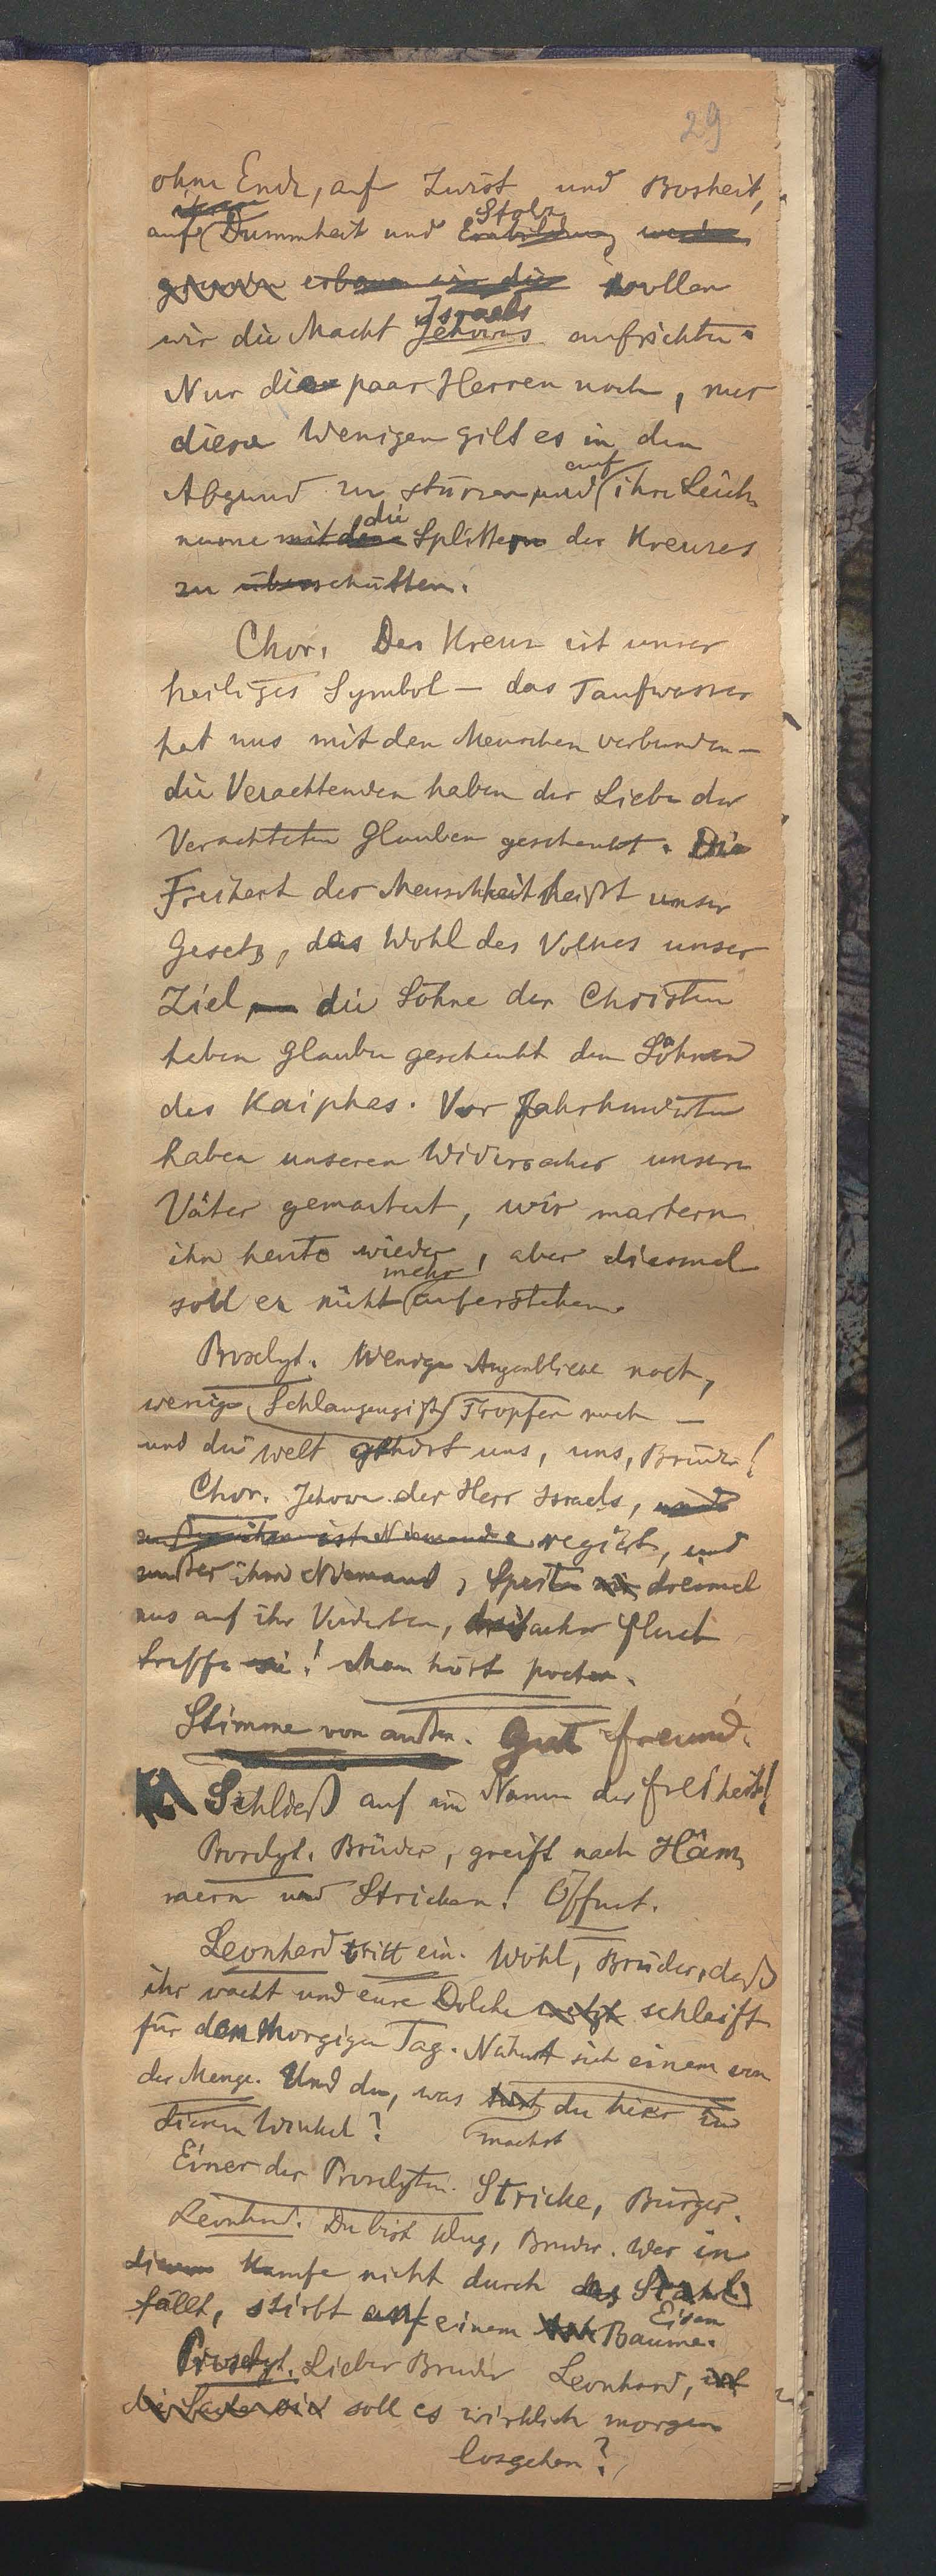 29
ohne Ende, auf Zwist und Bosheit,
auf Dummheit und Einbildung Stolz werden
erbauen wir die wollen
wir die Macht Jehovas Israels aufrichten.
Nur die paar Herren noch, nur
diese Wenigen gilt es in den
Abgrund zu stürzen und auf ihre Leich-
name mit den die Splittern des Kreuzes
zu überschütten.
Chor. Das Kreuz ist unser
heiliges Symbol — das Taufwasser
hat uns mit den Menschen verbunden —
die Verachtenden haben der Liebe der
Verachteten Glauben geschenkt. Die
Freiheit der Menschheit heißt unser
Gesetz, das Wohl des Volkes unser
Ziel, — die Söhne der Christen
haben Glauben geschenkt den Söhnen
des Kaiphas. Vor Jahrhunderten
haben unseren Widersacher unsere
Väter gemartert, wir martern
ihn heute wieder, aber diesmal
soll er nicht mehr auferstehen.
Proselyt. Wenige Augenblicke noch,
wenige Schlangengift Tropfen noch —
und die Welt gehört uns, uns, Brüder!
Chor. Jehova der Herr Israels, und
außer ihm ist Niemand regirt, und
außer ihm Niemand, Speiten wir dreimal
aus auf ihr Verderben, dreifacher Fluch
treffe sie! Man hört pochen.
Stimme von außen. Gut Freund.
Schließ auf im Namen der Freiheit!
Proselyt. Brüder, greift nach Häm-
mern und Stricken! Öffnet.
Leonhard tritt ein. Wohl, Brüder, daß
ihr wacht und eure Dolche wetzt schleift
für den morgigen Tag. Nähert sich einem von
der Menge. Und du, was thust du hier in
diesem Winkel? machst
Einer der Proselyten. Stricke, Bürger.
Leonhard. Du bist klug, Bruder. Wer in
diesem Kampfe nicht durch das Stahl
fällt, stirbt auf einem Baume. Eisen
Proselyt. Lieber Bruder Leonhard, ist
die Sache soll es wirklich morgen
losgehen?